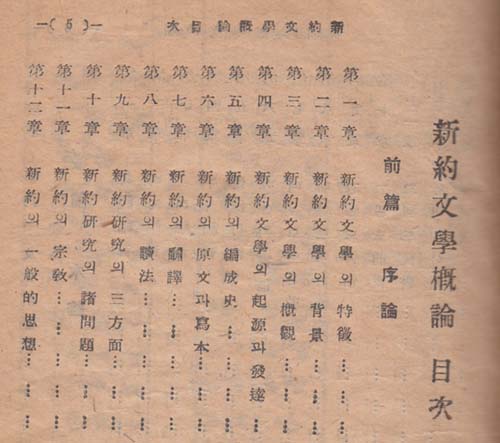 新約文學概論目次 —( 5 )—
新約文學概論 目次
前篇 序論
第一章 新約文學의 特徵……
第二章 新約文學의 背景……
第三章 新約文學의 概觀……
第四章 新約文學의 起源과 發達……
第五章 新約의 編成史……
第六章 新約의 原文과 寫本……
第七章 新約의 飜譯……
第八章 新約의 讀法……
第九章 新約研究의 三方面……
第十章 新約研究의 諸問題……
第十一章 新約의 宗敎……
第十二章 新約의 一般的思想……